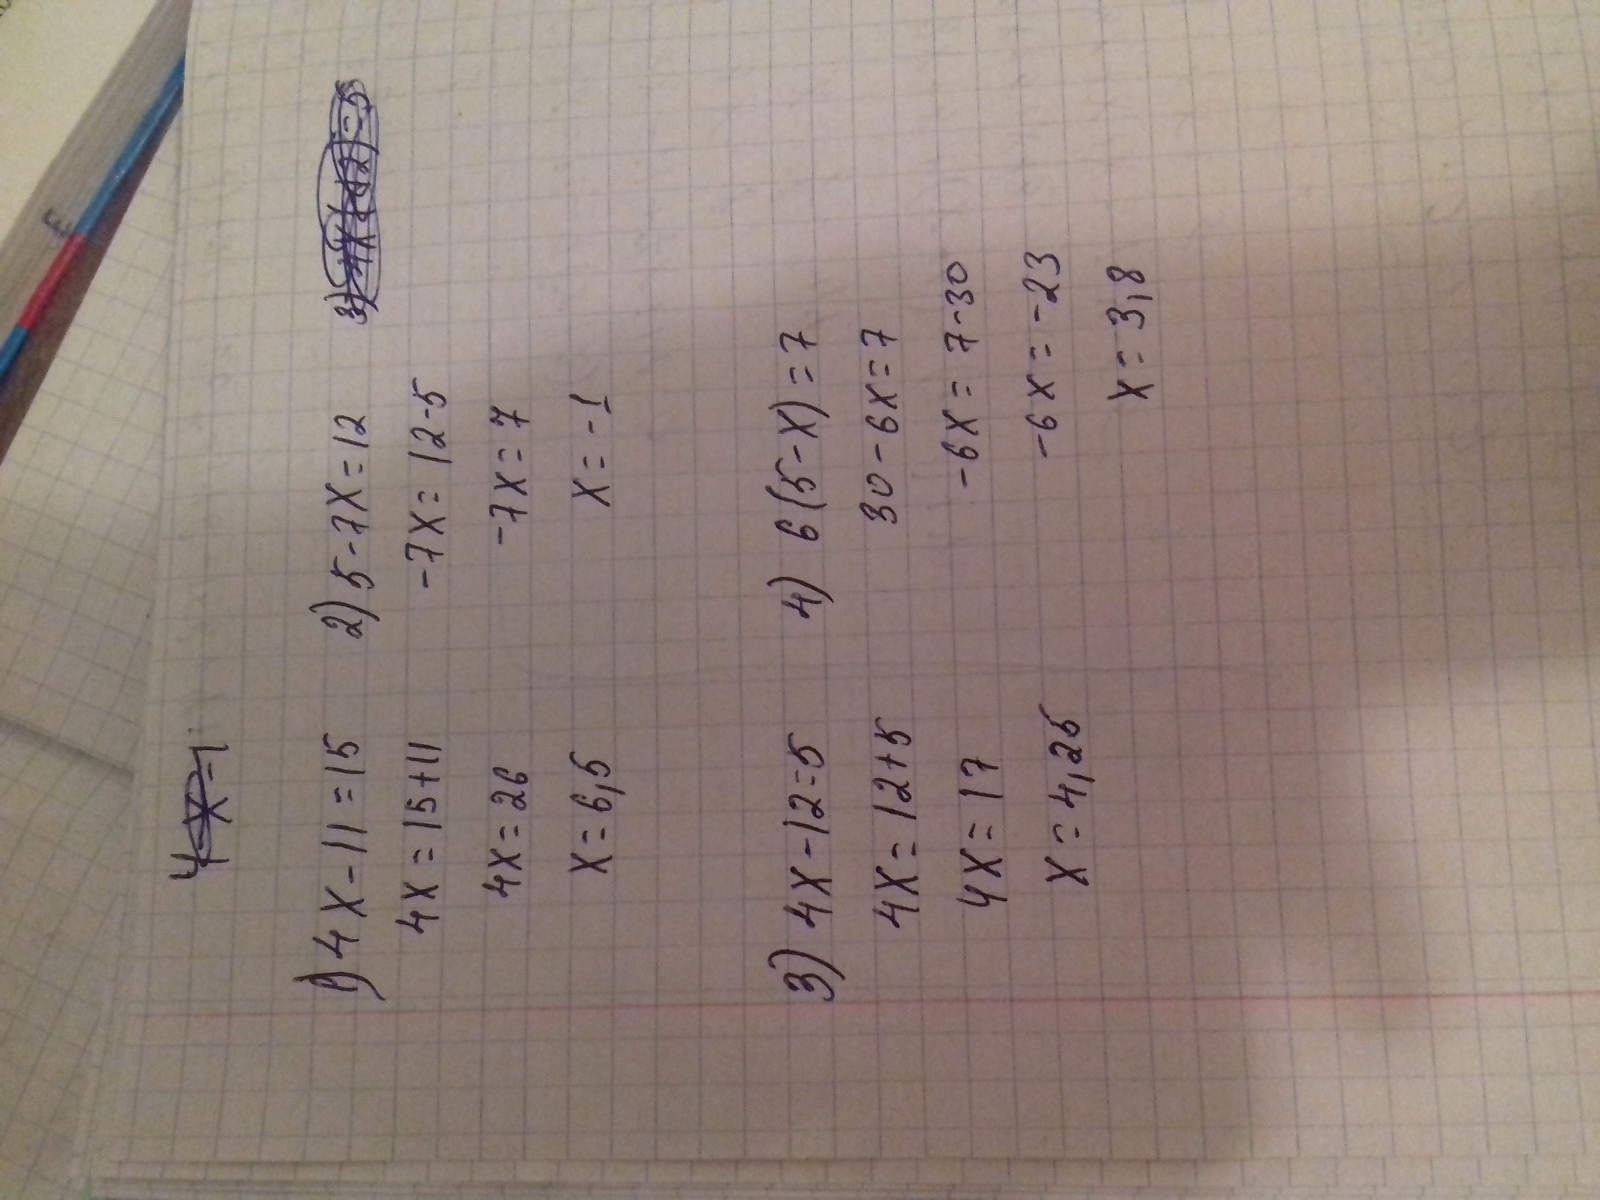 1) 4x-11=15
4x=15+11
4x=26
x=6,5
2) 5-7x=12
-7x=12-5
-7x=7
x=-1
3)
3) 4x-12=5
4x=12+5
4x=17
x=4,25
4) 6(5-x)=7
30-6x=7
-6x=7-30
-6x=-23
x=3,8